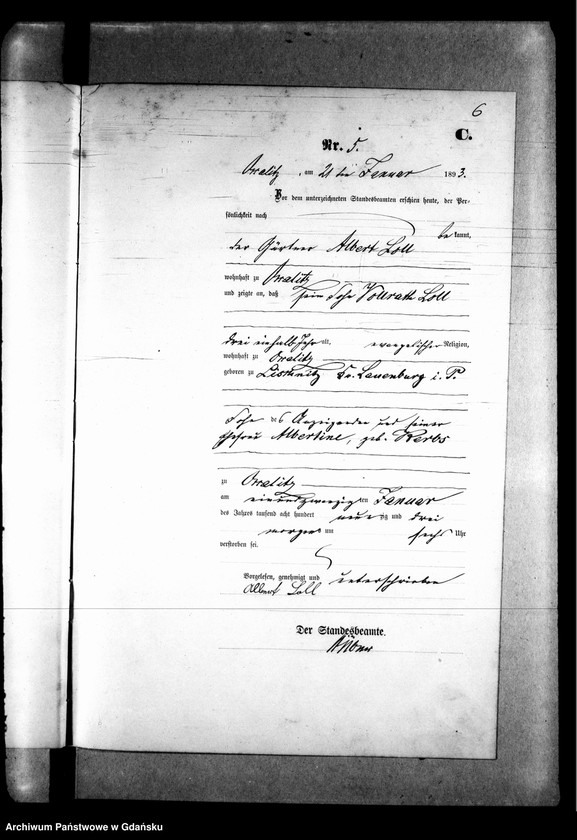 6
C.
Nr. 5.
am 21 ten Januar 1893.
Vor dem unterzeichneten Standesbeamten erschien heute, der Per-
sönlichkeit nach
be kannt,
der Gärtner Albert Loll
wohnhaft zu
und zeigte an, daß sein Sohn Vollrath Loll
drei einhalb Jahr alt, evangelischer Religion,
wohnhaft zu
geboren zu Kr. Lauenburg i. P.
Sohn des Anzeigenden und seiner
Ehefrau Albertine, geb. Kerbs
zu
am einundzwanzig ten Januar
des Jahres tausend acht hundert neun zig und drei
morgens um sechs Uhr
verstorben sei.
Vorgelesen, genehmigt und unterschrieben
Albert Loll
Der Standesbeamte.
Archiwum Państwowe w Gdańsku